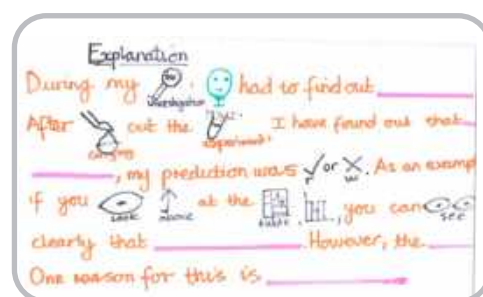 Explanation
During my investigation had to find out
After carrying out the experiment, I have found out that
, my prediction was r or w. As an examp
if you look above at the table, you can see
clearly that . However, the
One reason for this is